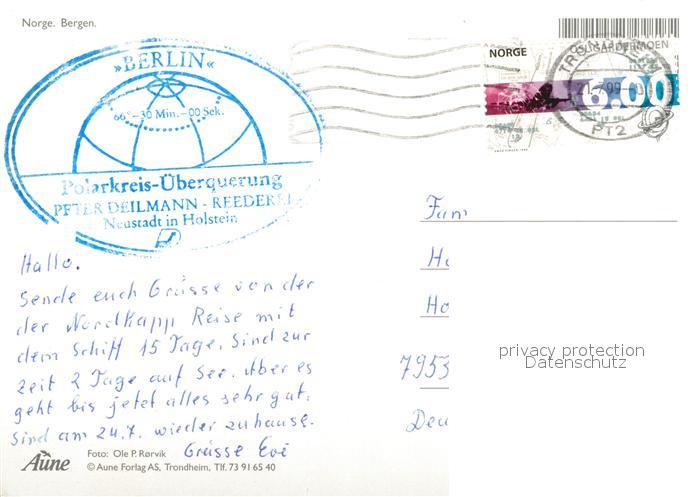 Norge. Bergen.
»BERLIN«
66°-30 Min.-00 Sek.
Polarkreis-Überquerung
PETER DEILMANN - REEDEREI
Neustadt in Holstein
NORGE
OSLO GARDERMOEN
6.00
PT2
Hallo.
Sende euch Grüsse von der
der Nordkapp Reise mit
dem Schiff 15 Tage. Sind zur
zeit 2 Tage auf See. Aber es
geht bis jetzt alles sehr gut.
Sind am 24.7. wieder zuhause.
Grüsse Evi
Fam
Ha
Ho
7953
Deu
privacy protection
Datenschutz
Aune
Foto: Ole P. Rørvik
© Aune Forlag AS, Trondheim, Tlf. 73 91 65 40